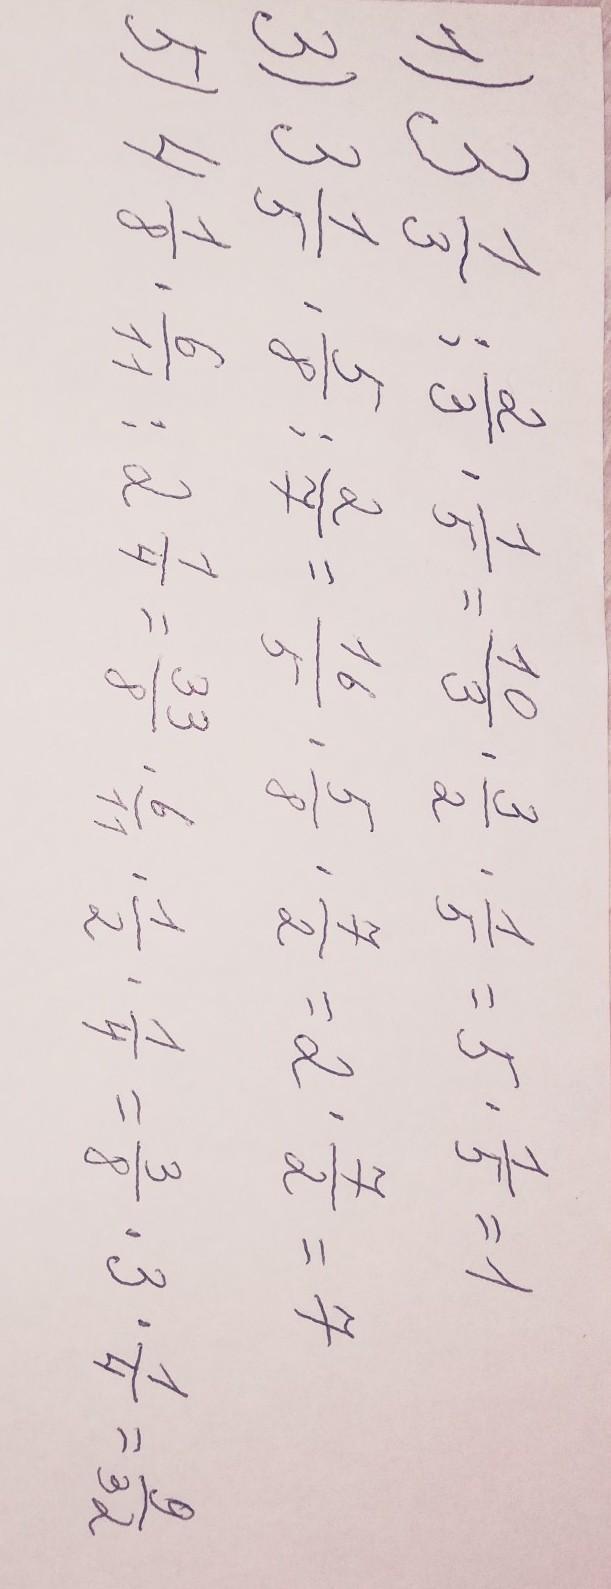 1) 3 1/3 : 2/3 · 1/5 = 10/3 · 3/2 · 1/5 = 5 · 1/5 = 1
3) 3 1/5 · 5/8 : 2/7 = 16/5 · 5/8 · 7/2 = 2 · 7/2 = 7
5) 4 1/8 · 6/11 : 2 1/4 = 33/8 · 6/11 · 1/2 · 1/4 = 3/8 · 3 · 1/4 = 9/32